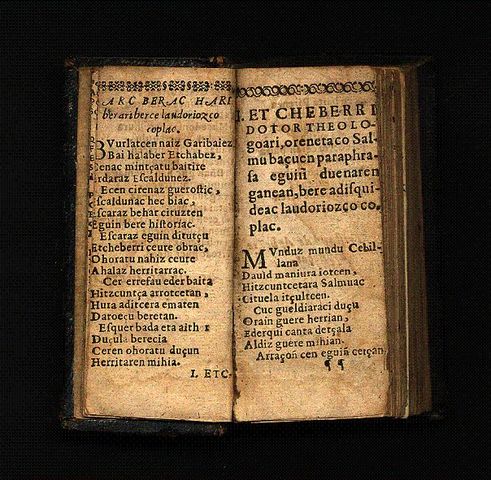 ARC BERAC HARI
berari berce laudoriozco
coplac.
BVurlatcen naiz Garibaiez
Bai halaber Etchabez,
Cenac mintçatu baitire
Erdaraz Escaldunez.
Ecen citenaz gueroſtic,
Eſcaldunac hec biac,
Eſcaraz behar cituzten
Eguin bere hiſtoriac.
Eſcaraz eguin ditutçu
Etcheberri ceure obrac,
Ohoratu nahiz ceure
Ahalaz herritarrac.
Cer errefau eder baita
Hitzcuntça arrotcetan,
Hura aditcera ematen
Daroeçu beretan.
Eſquer bada eta aith
Duçula berecia
Ceren ohoratu duçun
Herritaren mihia.
I. ETC-
I. ETCHEBERRI
DOTOR THEOLO-
goari, orenetaco Sal-
mu baçuen paraphra-
ſa eguiñ duenaren
ganean, bere adiſqui-
deac laudoriozço co-
plac.
MVnduz mundu Cebil-
lana
Dauid maniura iotcen,
Hitzcuntcetara Salmuac
Cituela itçultcen.
Cuc gueldiaraci duçu
Orain guere herrian,
Ederqui canta detçala
Aldiz guere mihian.
Arraçoñ cen eguiñ certçan
¶ ¶